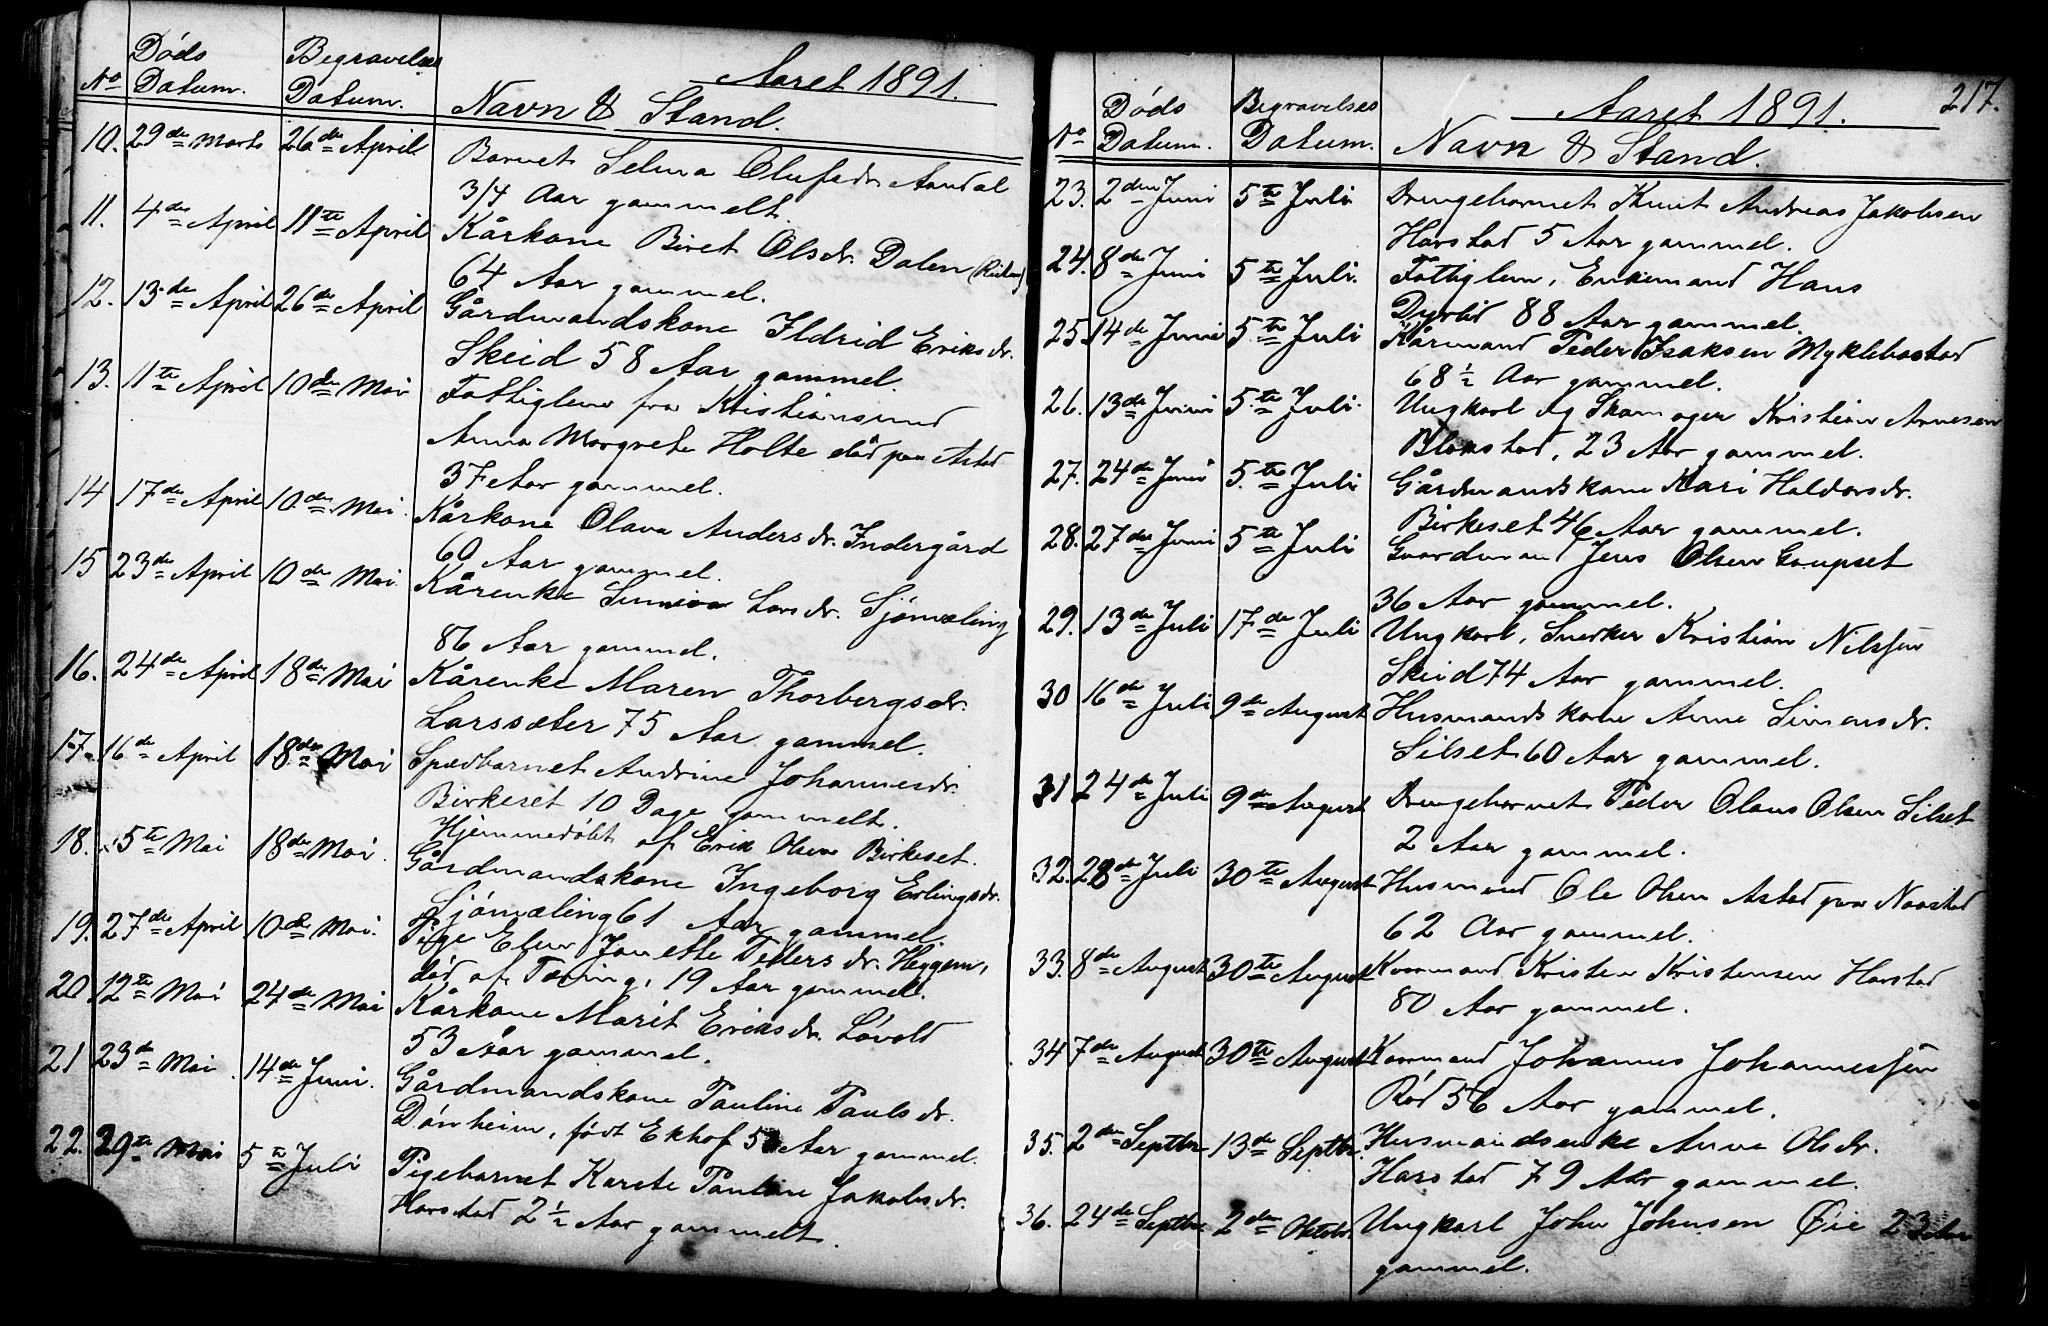 Aaret 1891.
No Døds Datum. Begravelses Datum. Navn & Stand.
10. 29de Marts 26de April Barnet Selma Olufsdr Aandal
3/4 Aar gammelt.
11. 4de April 11te April Kårkone Beret Olsdr. Dalen
64 Aar gammel.
12. 13de April 26de April Gårdmandskone Ildrid Eriksdr.
Skeid 58 Aar gammel.
13. 11te April 10de Mai Fattiglem fra Kristiansund
Anna Margrete Holte død paa Astad
37 Aar gammel.
14 17de April 10de Mai. Kårkone Olava Andersdr. Indergård
60 Aar gammel.
15 23de April 10de Mai. Kårenke Larsdr. Sjømæling
86 Aar gammel.
16. 24de April 18de Mai Kårenke Maren Thorbergsdr.
Larssæter 75 Aar gammel.
17. 16de April 18de Mai Spædbarnet Andrine Johannesdr.
Birkeset 10 Dage gammelt.
Hjemmedøbt af Erik Olsen Birkeset.
18. 5te Mai 18de Mai. Gårdmandskone Ingeborg Erlingsdr.
Sjømæling 61 Aar gammel.
19. 27de April 10de Mai. Pige Elen Janette Pedersdr. Heggem,
død af Tæring, 19 Aar gammel.
20 12te Mai 24de Mai Kårkone Marit Eriksdr. Løvold
53 Aar gammel.
21 23de Mai 14de Juni. Gårdmandskone Pauline Paulsdr.
Dønheim, født Ekhof Aar gammel.
22. 29te Mai 5te Juli Pigebarnet Karete Pauline Jakobsdr.
Harstad 2 1/2 Aar gammelt.
217.
Aaret 1891.
No Døds Datum. Begravelses Datum. Navn & Stand.
23. 2den Juni 5te Juli Drengebarnet Knut Andreas Jakobsen
Harstad 5 Aar gammel.
24. 8de Juni 5te Juli. Fattiglem, Enkemand Hans
Dyrlid 88 Aar gammel.
25. 14de Juni 5te Juli Kårmand Peder Isaksen Myklebostad
68 1/2 Aar gammel.
26. 13de Juni 5te Juli. Ungkarl og Skomager Kristian Arnesen
Blakstad, 23 Aar gammel.
27. 24de Juni 5te Juli Gårdmandskone Kari Haldorsdr.
Birkeset 46 Aar gammel.
28. 27de Juni 5te Juli Gaardmand Jens Olsen Gaupset
36 Aar gammel.
29. 13de Juli 17de Juli Ungkarl, Snedker Kristian Nilssen
Skeid 74 Aar gammel.
30 16de Juli 9de August Husmandskone Anne Simonsdr.
Silset 60 Aar gammel.
31 24de Juli 9de August Drengebarnet Peder Olaus Olsen Silset
2 Aar gammel.
32. 28de Juli 30te August Husmand Ole Olsen Astad paa Naastad
62 Aar gammel.
33. 8de August 30te August Kaarmand Kristen Kristensen Harstad
80 Aar gammel.
34 7de August 30te August Kaarmand Johannes Johannessen
Rød 56 Aar gammel.
35. 2den Septbr 13de Septbr. Husmandsenke Anne Olsdr.
Harstad 79 Aar gammel.
36. 24de Septbr 2den Oktobr. Ungkarl John Johnsen Øie 23 Aar
gammel.